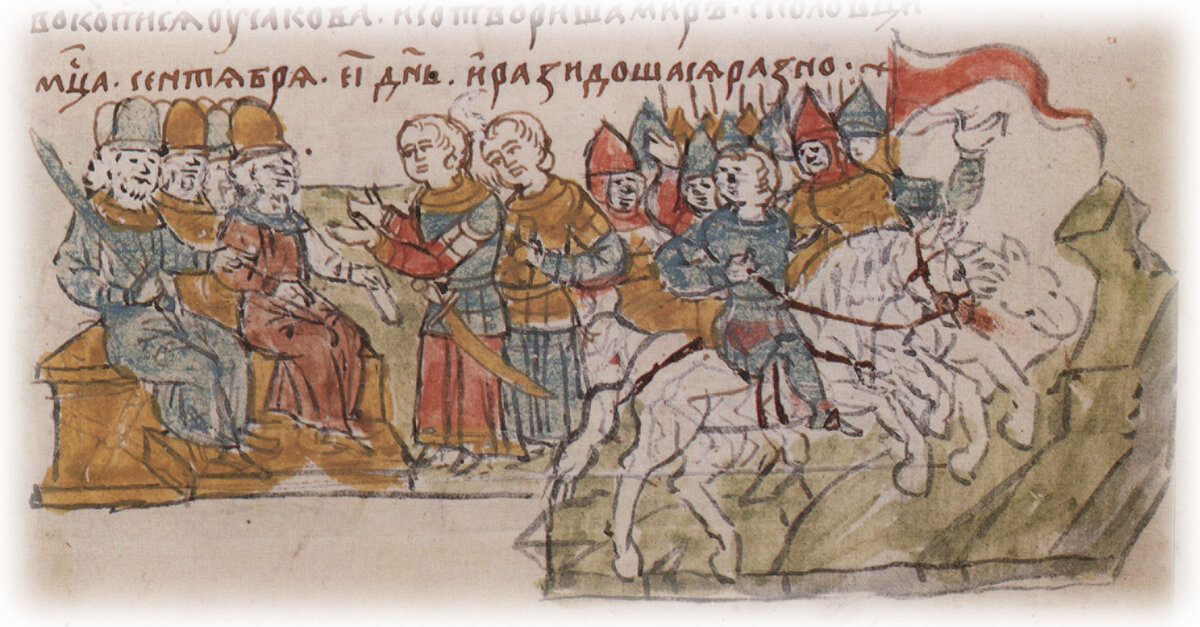 вокописѧ оу сакова · и сотвориша миръ · с половци
мⷭ҇ца · сентѧбрѧ · еі҃ · дн҃ь · и разидошасѧ разно · ~